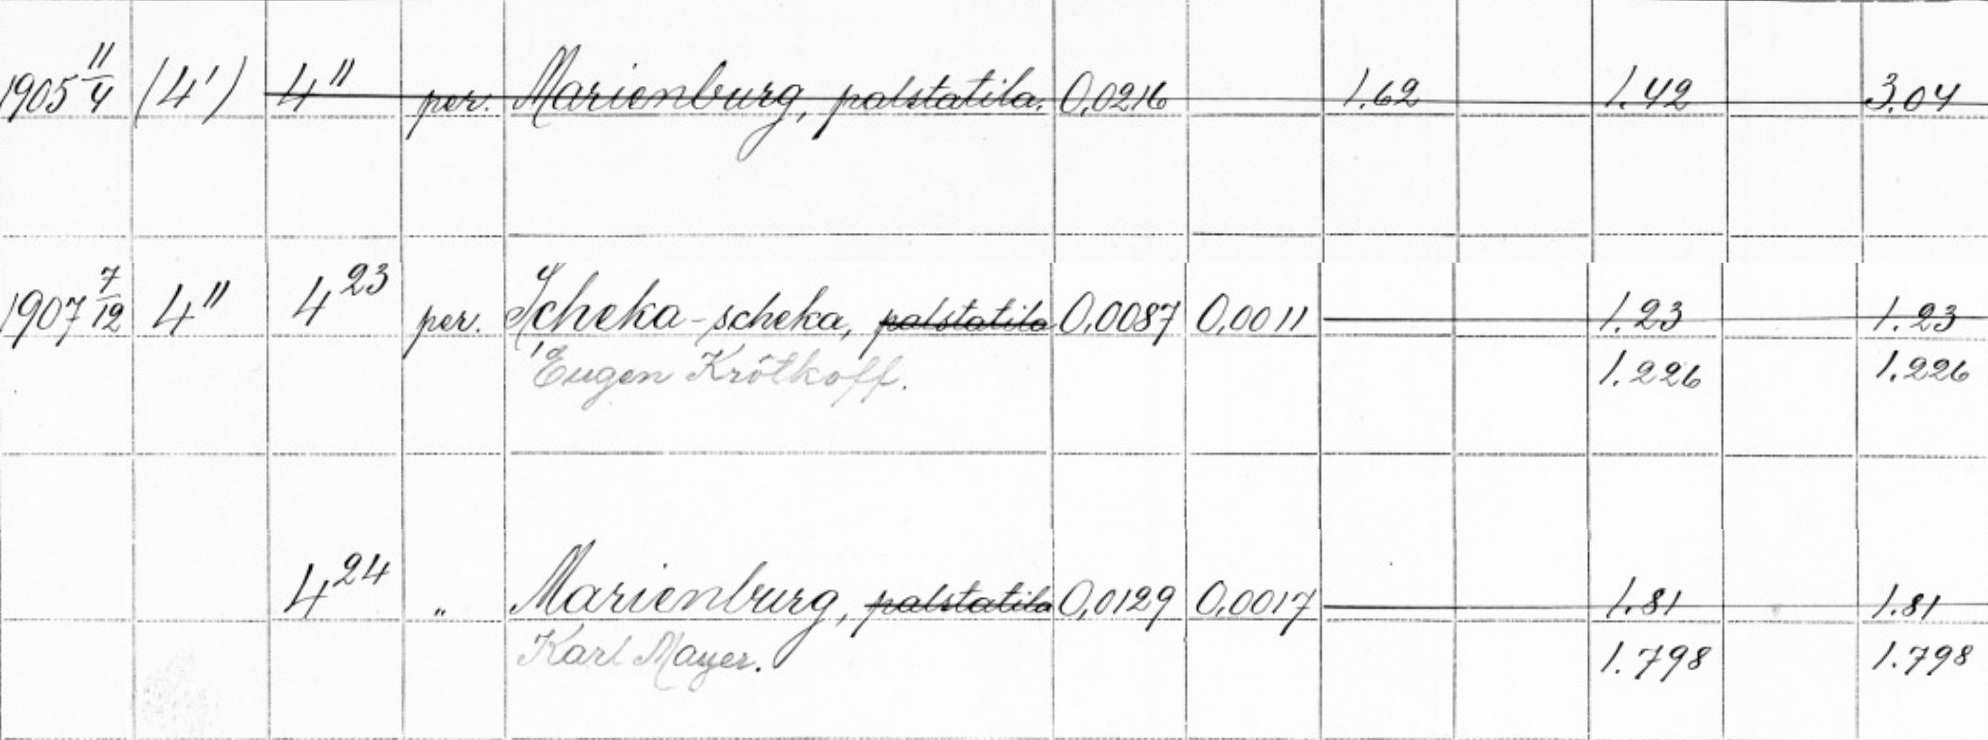 1905 11/4 (4') 4" per. Marienburg, palstatila. 0,0216 1.62 1.42 3.04
1907 7/12 4" 4 23 per. Scheka-scheka, palstatila 0,0087 0,0011 1.23 1.23
Eugen Krôtkoff. 1.226 1.226
4 24 " Marienburg, palstatila 0,0129 0,0017 1.81 1.81
Karl Mayer. 1.798 1.798